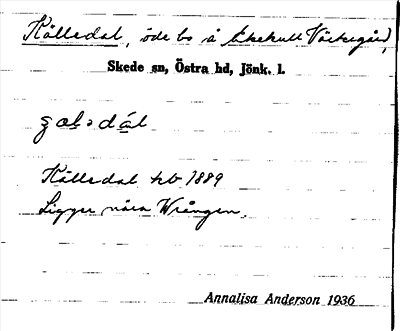 Källedal, öde bs å Ekekull Västergård,
Skede sn, Östra hd, Jönk. l.
Källedal hb 1889
Ligger nära Wrången.
Annalisa Anderson 1936